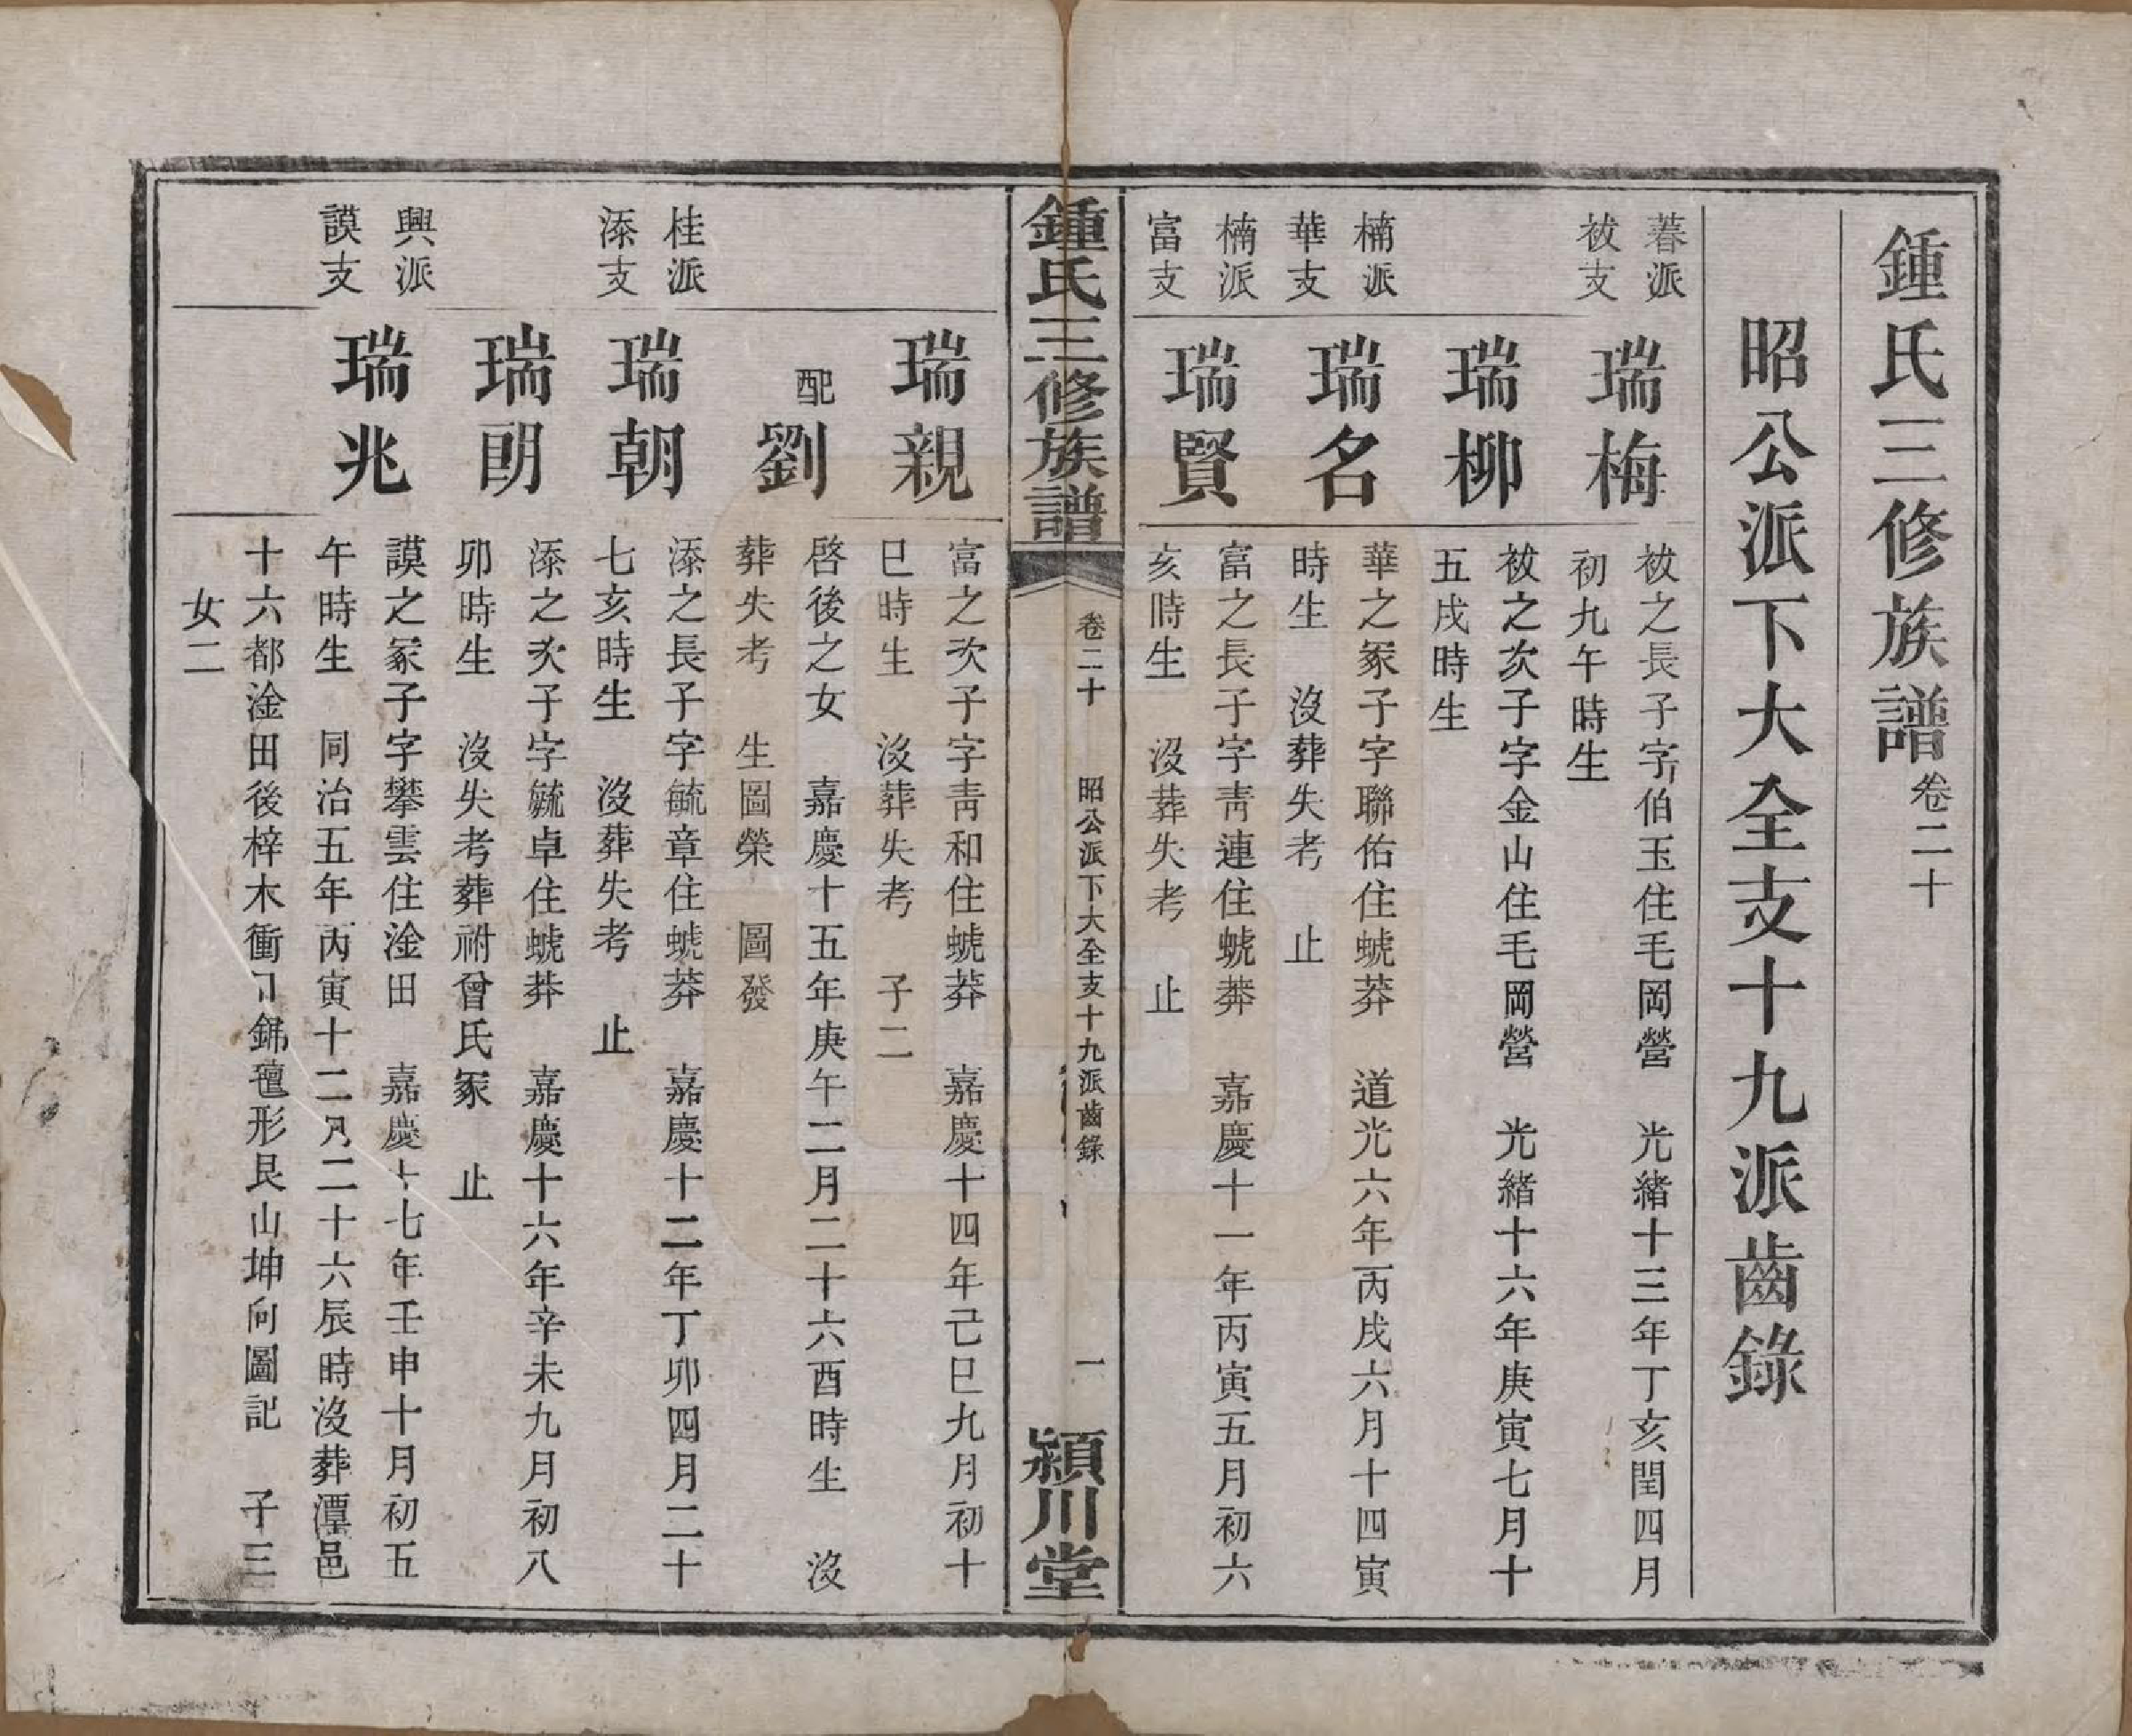 鍾氏三修族譜卷二十
昭公派下大全支十九派齒錄
暮派
祓支
瑞梅
祓之長子字伯玉住毛岡營　光緒十三年丁亥閏四月
初九午時生
瑞柳
祓之次子字金山住毛岡營　光緒十六年庚寅七月十
五戌時生
楠派
華支
瑞名
華之冢子字聯佑住螰莽　道光六年丙戌六月十四寅
時生　沒葬失考　止
楠派
富支
瑞賢
富之長子字靑連住螰莽　嘉慶十一年丙寅五月初六
亥時生　沒葬失考　止
鍾氏三修族譜　卷二十　昭公派下大全支十九派齒錄　一　潁川堂
瑞親
富之次子字靑和住螰莽　嘉慶十四年己巳九月初十
巳時生　沒葬失考　子二
配劉
啓後之女　嘉慶十五年庚午二月二十六酉時生　沒
葬失考　生圖榮　圖發
桂派
添支
瑞朝
添之長子字毓章住螰莽　嘉慶十二年丁卯四月二十
七亥時生　沒葬失考　止
瑞朗
添之次子字毓卓住螰莽　嘉慶十六年辛未九月初八
卯時生　沒失考葬祔曾氏冢　止
興派
謨支
瑞兆
謨之冢子字攀雲住淦田　嘉慶十七年壬申十月初五
午時生　同治五年丙寅十二月二十六辰時沒葬潭邑
十六都淦田後梓木衝口錦形艮山坤向圖記　子三
女二